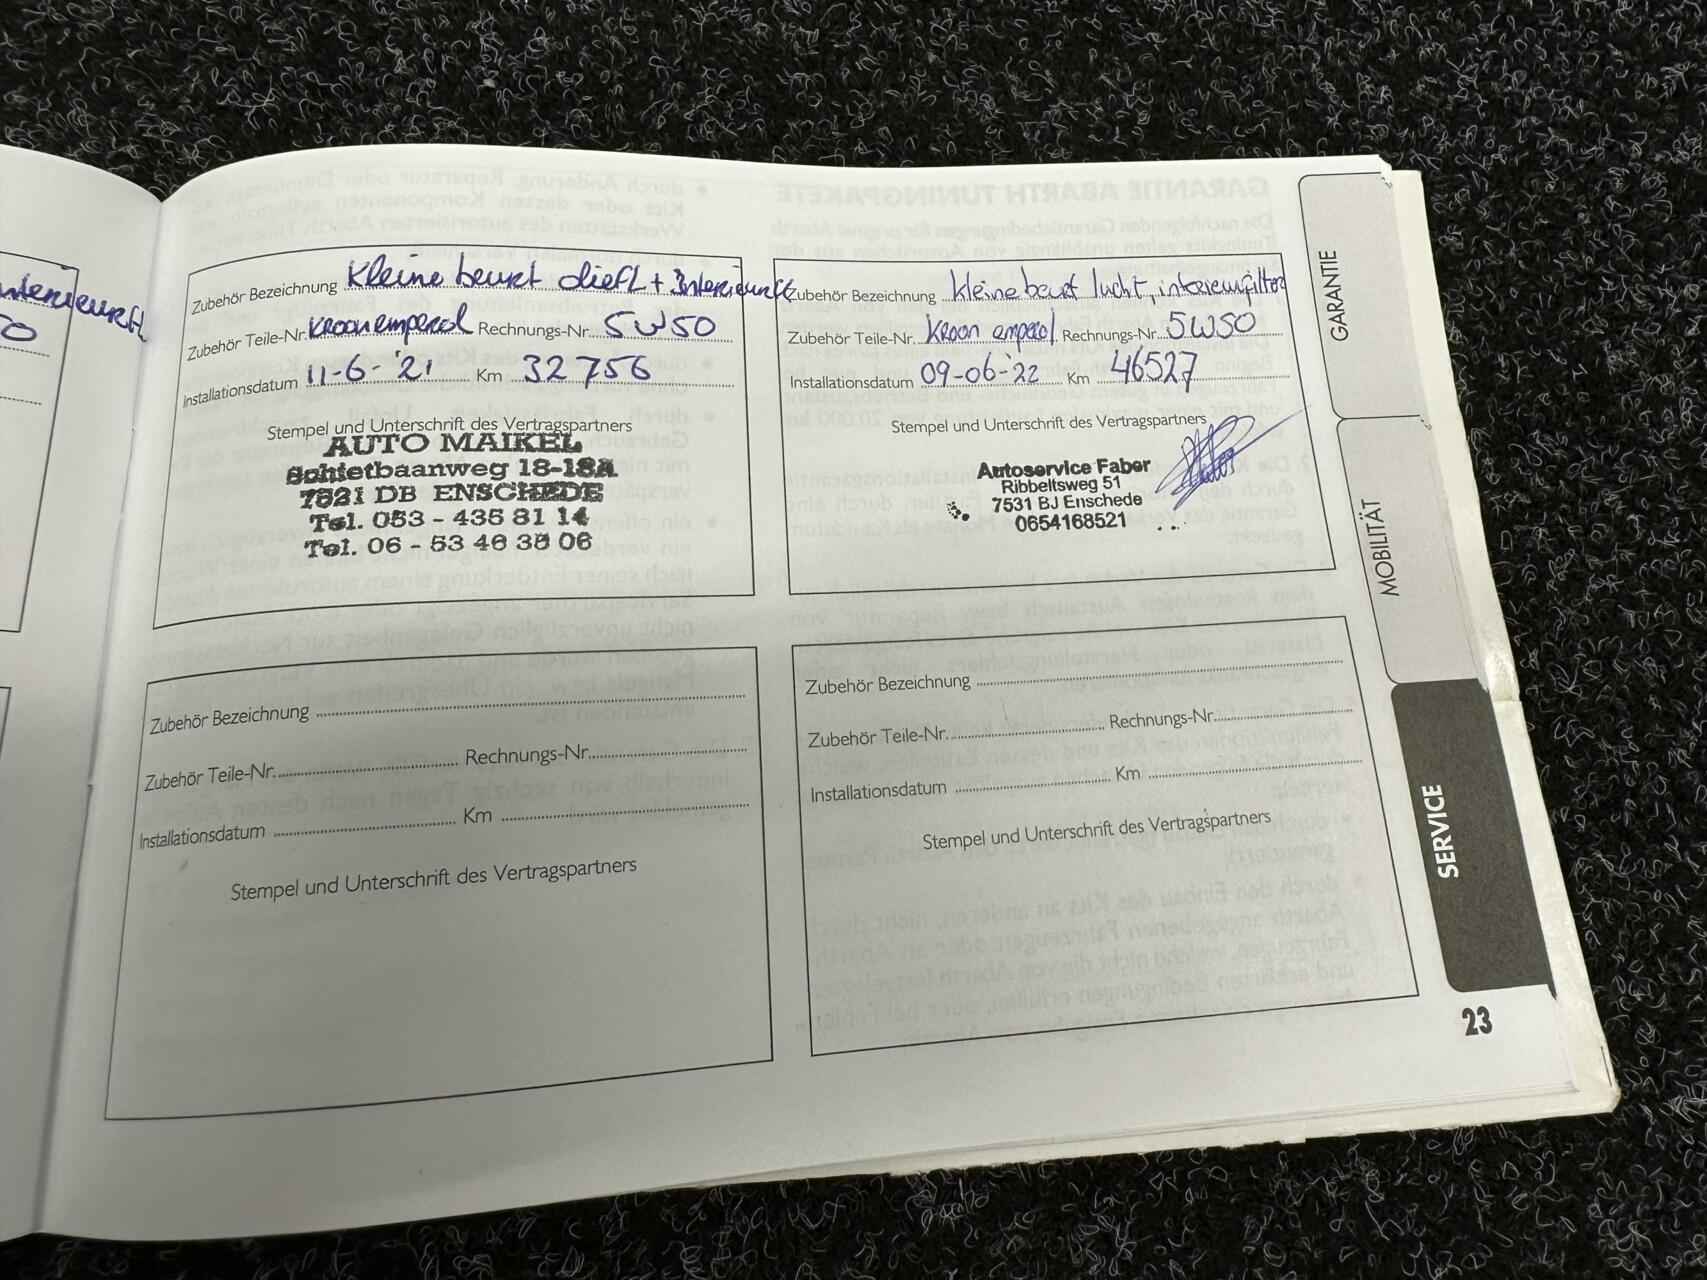 50
Zubehör Bezeichnung Kleine beurt
Zubehör Teile-Nr. kroon emperol Rechnungs-Nr. 5W50
Installationsdatum 11-6-'21 Km 32756
Stempel und Unterschrift des Vertragspartners
AUTO MAIKEL
Schietbaanweg 18-18A
7521 DB ENSCHEDE
Tel. 053 - 435 81 14
Tel. 06 - 53 46 38 06
Zubehör Bezeichnung kleine beurt lucht, interieurfilter
Zubehör Teile-Nr. kroon emperol Rechnungs-Nr. 5W50
Installationsdatum 09-06-'22 Km 46527
Stempel und Unterschrift des Vertragspartners
Autoservice Faber
Ribbeltsweg 51
7531 BJ Enschede
0654168521
Zubehör Bezeichnung
Zubehör Teile-Nr. Rechnungs-Nr.
Installationsdatum Km
Stempel und Unterschrift des Vertragspartners
Zubehör Bezeichnung
Zubehör Teile-Nr. Rechnungs-Nr.
Installationsdatum Km
Stempel und Unterschrift des Vertragspartners
GARANTIE
MOBILITÄT
SERVICE
23